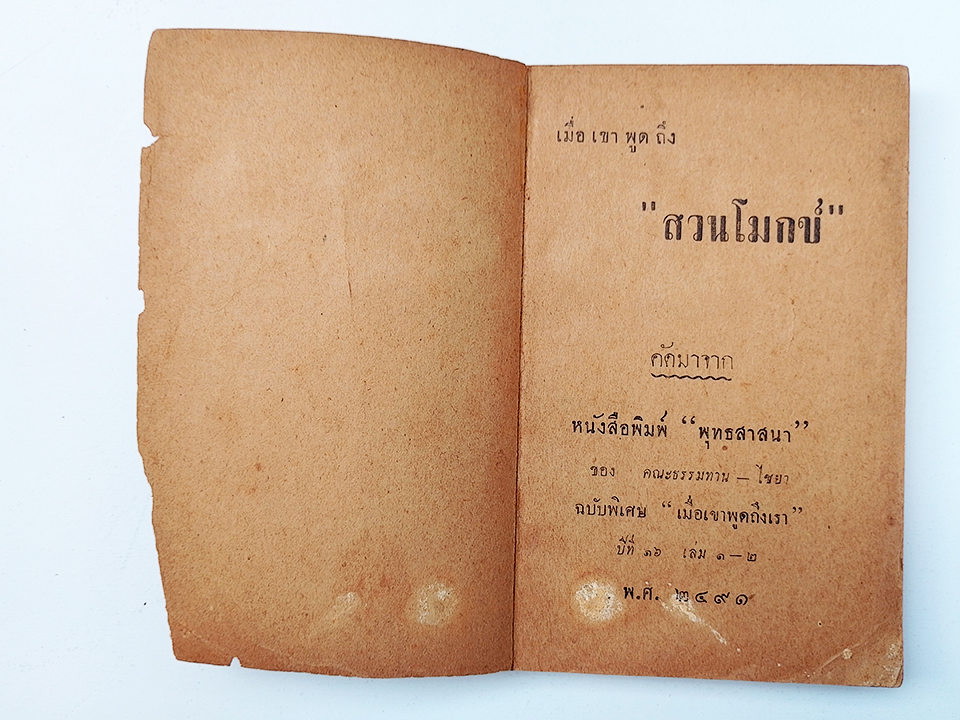 เมื่อ เขา พูด ถึง
"สวนโมกข์"
คัดมาจาก
หนังสือพิมพ์ “พุทธสาสนา”
ของ คณะธรรมทาน — ไชยา
ฉบับพิเศษ “เมื่อเขาพูดถึงเรา”
ปีที่ ๑๖ เล่ม ๑ — ๒
พ.ศ. ๒๔๙๑